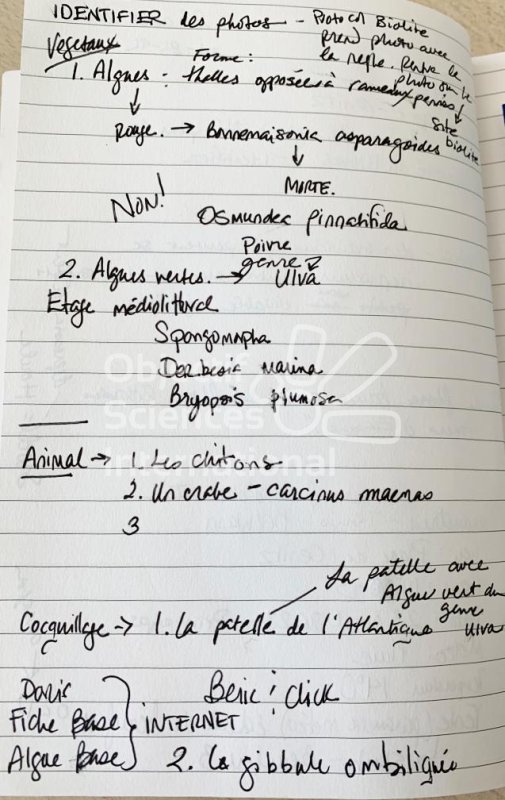 IDENTIFIER des photos - Protocol Biolite
prend photo avec
la regle. Rentre le
photo sur le
site
biolite
Vegetaux
Forme:
1. Algues: thelles opposées à rameaux
Rouge. → Bonnemaisonia asparagoides
MORTE.
NON!
Osmundea pinnatifida
Poivre
genre
2. Algues vertes. → Ulva
Etage médiolittoral
Spongomorpha
Derbesia marina
Bryopsis plumosa
Animal → 1. Les chitons
2. Un crabe - carcinus maenas
3
La patelle avec
Algue vert du
genre
Ulva
Cocquillage → 1. La patelle de l'Atlantique
Doris
Fiche Base
Algae Base
INTERNET
Beric: click
2. La gibbule ombiliquée
Objectif
Sciences
International